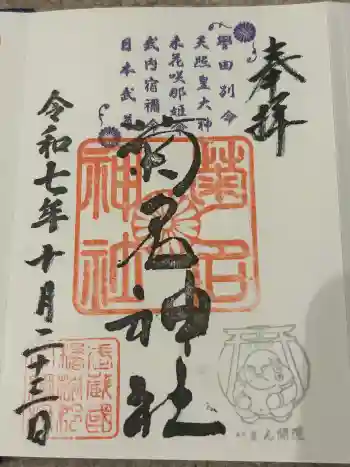 奉拝
誉田別命
天照皇大神
木花咲耶姫命
武内宿禰命
日本武尊
菊名神社
菊名
神社
令和七年十月二十三日
武蔵國